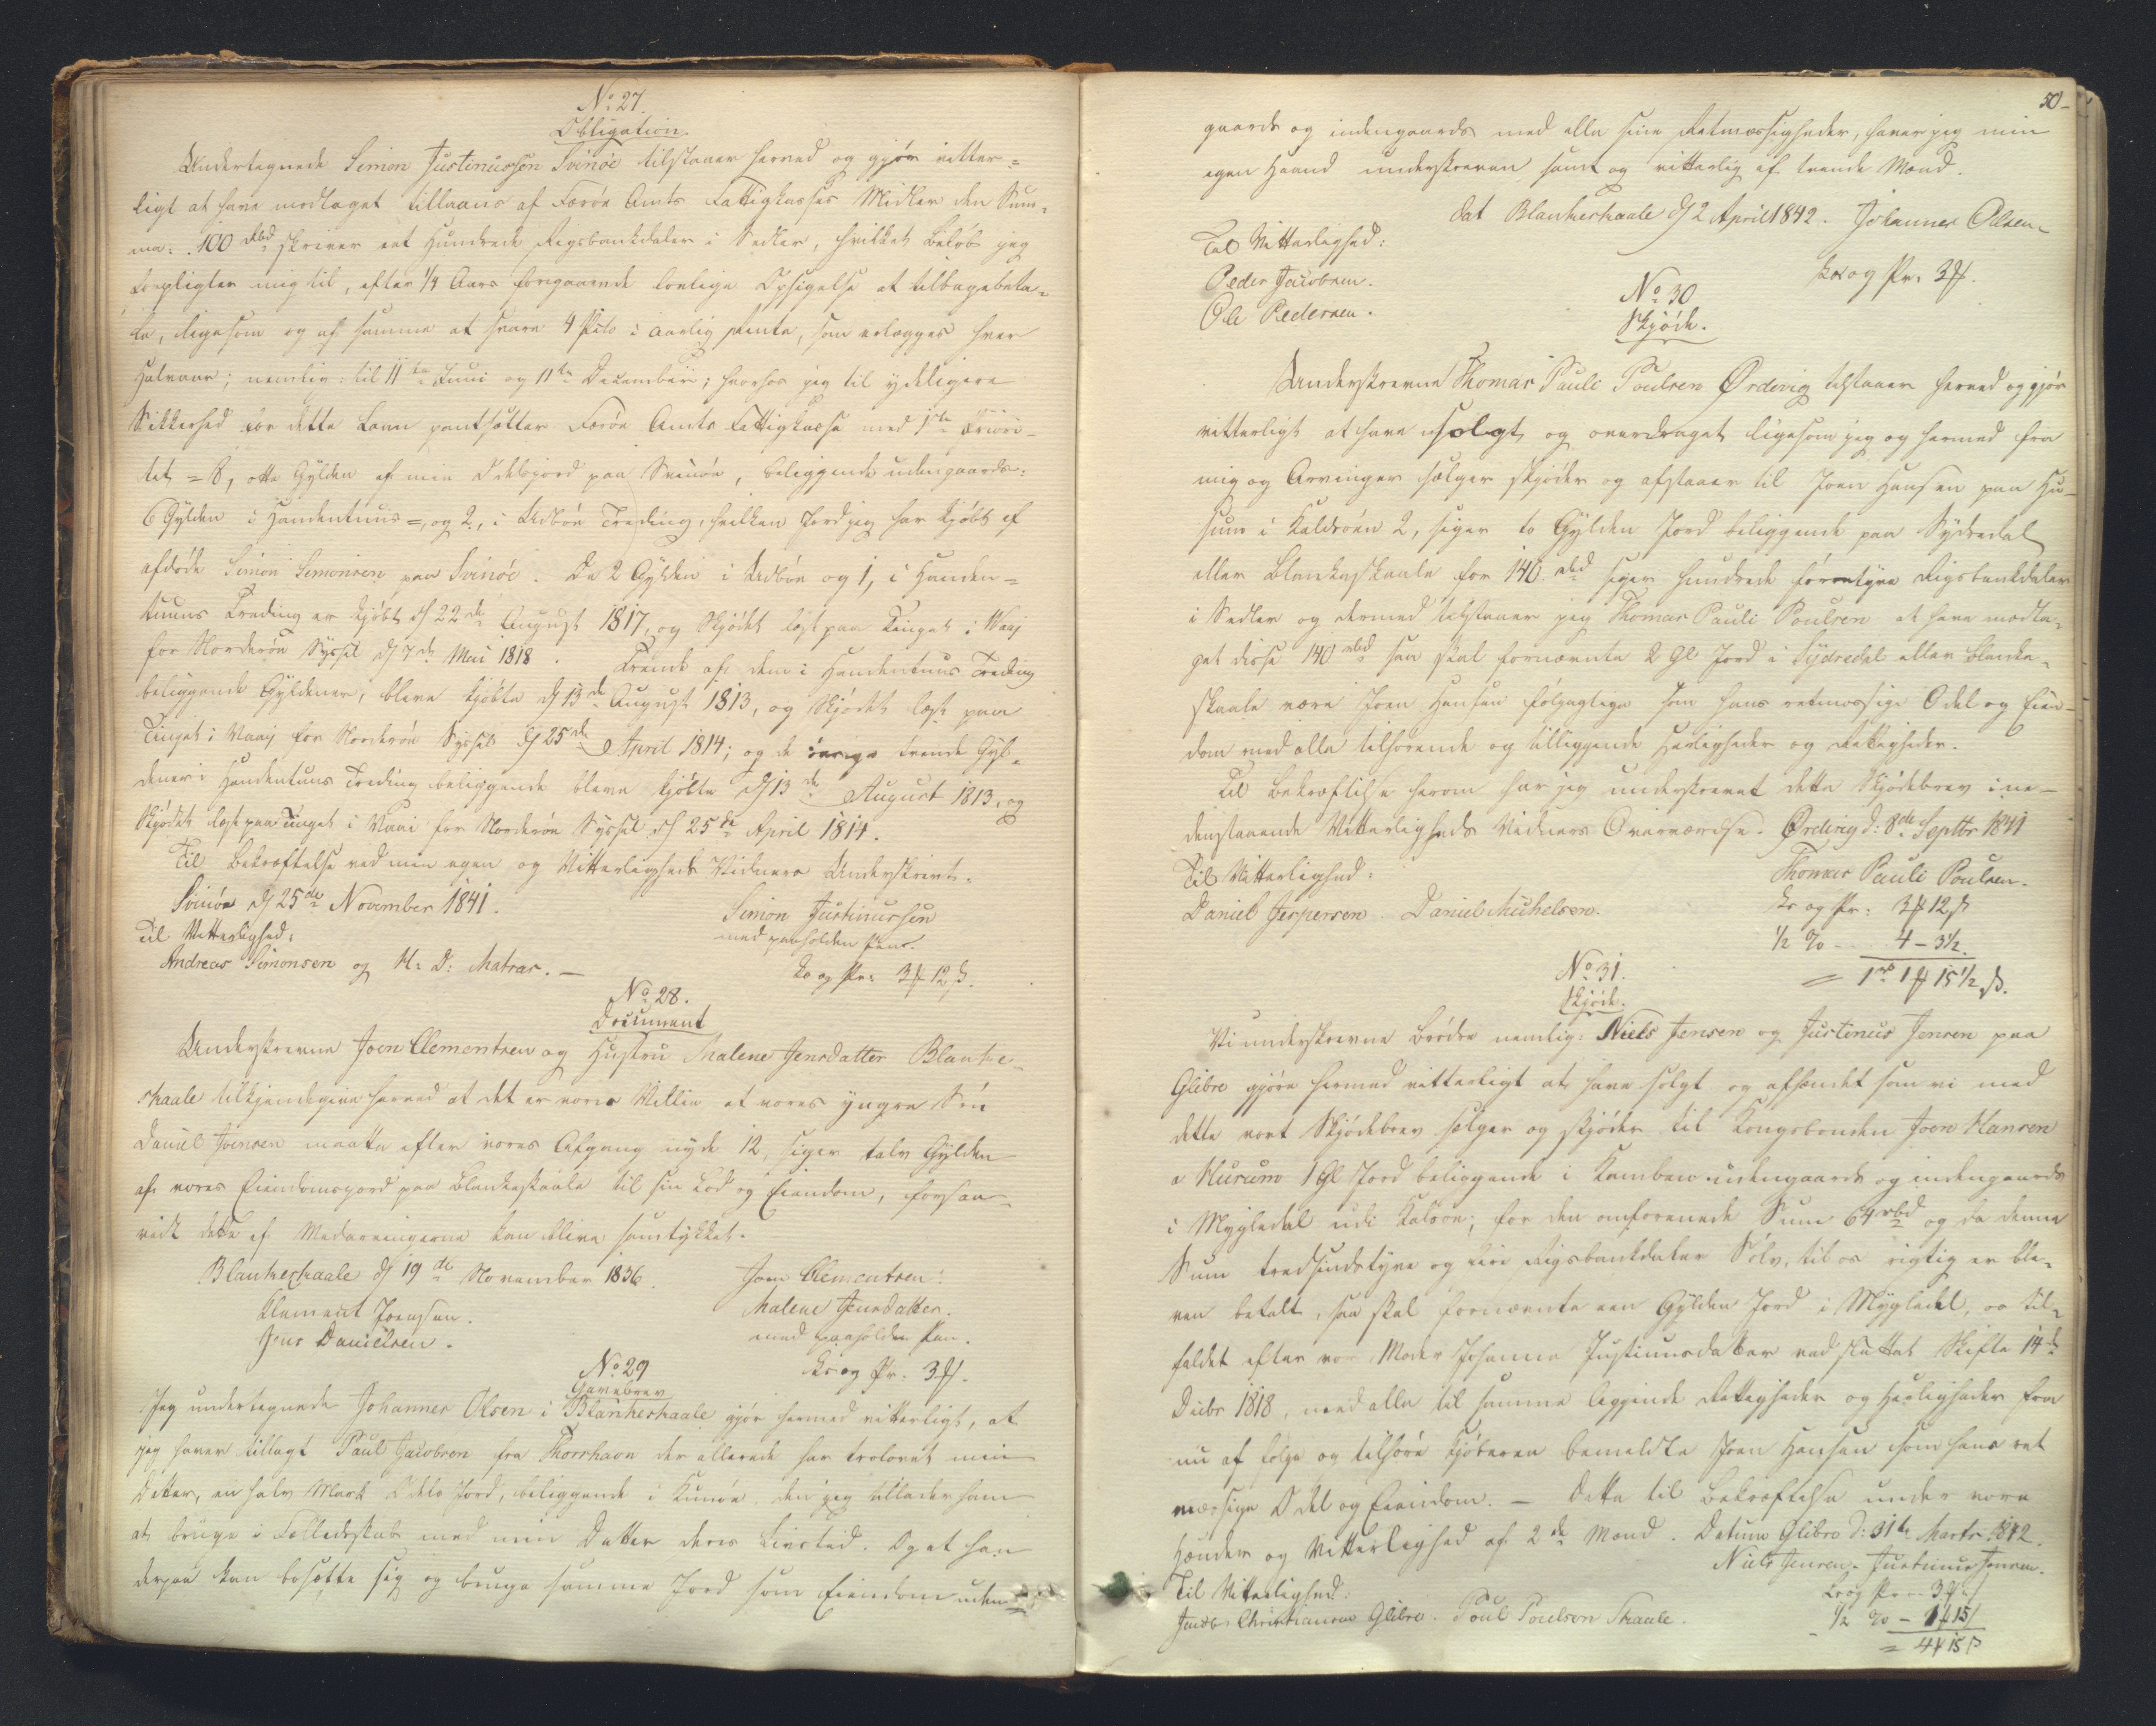 No 27.
Obligation.
Undertegnede Simon Justinussen Svinöe tilstaaer herved og gjör vitter=
ligt at have modtaget tillaans af Færöe Amts Fattigkasses Midler den Sum,
ma: 100 Rbd skriver eet Hundrede Rigsbankdaler i Sedler, hvilket Belöb jeg
forpligter mig til, efter 1/4 Aars forgaaende lovlige Opsigelse at tilbagebeta=
le, ligesom og af samme at svare 4 Pcto i aarlig Rente, som erlægges hver
Halvaar; nemlig: til 11te Juni og 11te December; hvorhos jeg til ydeligere
Sikkerhed for dette Laan pantsætter Færöe Amts Fattigkasse med 1ste Priori-
tet = 8, otte Gylden af min Odelsjord paa Svinöe, beliggende udengaards:
6 Gylden i Handentuns =, og 2, i Udböe Treding, hvilken Jord jeg har kjöbt af
afdöde Simon Simonsen paa Svinöe. De 2 Gylden i Udböe og 1, i Handen=
tuuns Treding er kjöbt d 22de August 1817, og Skjödet læst paa Tinget i Waaj
for Norderöe Syssel d 7de Mai 1818. Trende af dem i Handentuns Treding
beliggende Gyldener, bleve kjöbte d 13de August 1813, og Skjödet læst paa
Tinget i Waaj for Norderöe Syssel d 25de April 1814; og de övrige trende Gyl=
dener i Handentuns Treding beliggende bleve kjöbte d 13de August 1813, og
Skjödet læst paa Tinget i Vaai for Norderöe Syssel d 25de April 1814.
Til Bekræftelse ved min egen og Vitterligheds Vidners Underskrivt.
Svinöe d 25de November 1841.
Simon Justinussen
med paaholden Pen.
Til Vitterlighed:
Andreas Simonsen og H: D: Matras. —
Ls og Pr: 3 # 12 ß.
No 28.
Document
Underskrevne Joen Clementsen og Hustru Malene Jensdatter Blanke-
skaale tilkjendegive herved at det er vores Villie at vores yngre Sön
Daniel Joensen maatte efter vores Afgang nyde 12, siger tolv Gylden
af vores Eiendomsjord paa Blankeskaale til sin Lod og Eiendom, forsaa-
vidt dette af Medarvingerne kan blive samtykket.
Blankeskaale d 19de November 1836.
Joen Clementsen.
Malene Jensdatter.
med paaholden Pen.
Clement Joensen.
Jens Danielsen.
Ls og Pr: 3 #.
No 29
Gavebrev
Jeg undertegnede Johannes Olsen i Blankeskaale gjör hermed vitterligt, at
jeg haver tillagt Paul Jacobsen fra Thorshavn der allerede har trolovet min
Datter, en halv Mark Odels Jord, beliggende i Kunöe, den jeg tillader ham
at bruge i Fælledsskab med min Datter deres Livstid. Og at han
derpaa kan bosætte sig og bruge samme Jord som Eiendom uden=
50-
gaards og indengaards med alle sine Retmæssigheder, haver jeg min
egen Haand underskreven samt og vitterlig af tvende Mænd.
Dat Blankeskaale d 2 April 1842. Johannes Olsen
Til Vitterlighed:
Peder Jacobsen.
Ole Pedersen.
Ls og Pr: 3 #.
No 30
Skjöde.
Underskrevne Thomas Pauli Poulsen Ördevig tilstaaer herved og gjör
vitterligt at have solgt og overdraget ligesom jeg og hermed fra
mig og Arvinger sælger skjöder og afstaaer til Joen Hansen paa Hu-
sum i Kaldsöen 2, siger to Gylden Jord beliggende paa Sydredal
eller Blankeskaale for 140 rbd siger hundrede förretyve Rigsbankdaler
i Sedler og dermed tilstaaer jeg Thomas Pauli Poulsen at have modta=
get disse 140 rbd saa skal fornævnte 2 Gl Jord i Sydredal eller Blanke=
skaale være Joen Hansen fölgagtige som hans retmæssige Odel og Eien-
dom med alle tilhörende og tilliggende Herligheder og Rettigheder.
Til Bekræftelse herom har jeg underskrevet dette Skjödebrev i ne-
denstaaende Vitterligheds Vidners Overværelse. Ördevig d: 8de Septbr 1841
Til Vitterlighed:
Thomas Pauli Poulsen.
Daniel Jespersen. Daniel Michelsen.
Ls og Pr: 3 # 12 ß
1/2 % -- 4 - 3 1/2
= 1 rb 1 # 15 1/2 ß.
No 31.
Skjöde.
Vi underskrevne Brödre nemlig: Niels Jensen og Justinus Jensen paa
Glibre gjöre hermed vitterligt at have solgt og afhændet som vi med
dette vort Skjödebrev sælger og skjöder til Kongsbonden Joen Hansen
a Husum 1 Gl Jord beliggende i Kamben udengaards og indengaards
i Mygledal udi Kalsöe; for den omforenede Sum 64 rbd og da denne
Sum tredsindstyve og fire Rigsbankdaler Sölv, til os rigtig er ble=
ven betalt, saa skal fornævnte een Gylden Jord i Mygledal, os til=
faldet efter vor Moder Johanne Justinusdatter ved sluttet Skifte 14de
Decbr 1818, med alle til samme liggende Rettigheder og Herligheder fra
nu af fölge og tilhöre Kjöberen bemeldte Joen Hansen som hans ret
mæssige Odel og Eiendom. — Dette til Bekræftelse under vore
Hænder og Vitterlighed af 2de Mænd. Datum Glibre d: 31te Marts 1842.
Niels Jensen. Justinus Jensen.
Til Vitterlighed:
Jacob Christiansen Glibre. Poul Poulsen Skaale.
Ls og Pr -- 3 #
1/2 % - 1 # 15 ß
= 4 # 15 ß